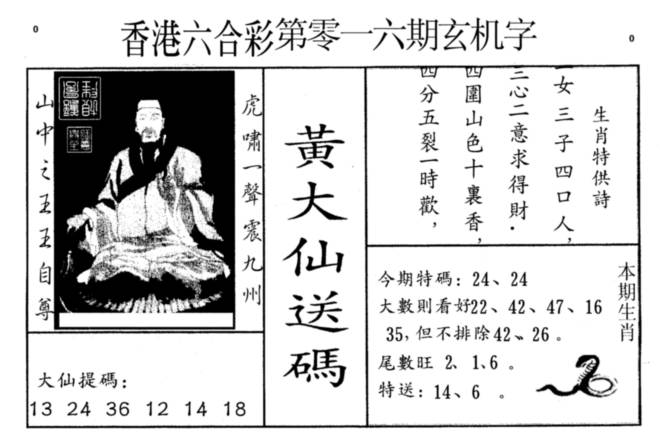 香港六合彩第零一六期玄机字
虎嘯一聲震九州
山中之王王自尊
大仙提碼：
13 24 36 12 14 18
黃大仙送碼
生肖特供詩
一女三子四口人，
三心二意求得財．
四圍山色十裏香，
四分五裂一時歡，
本期生肖
今期特碼：24、24
大數則看好22、42、47、16
35，但不排除42、26 。
尾數旺 2、1、6 。
特送：14、6 。